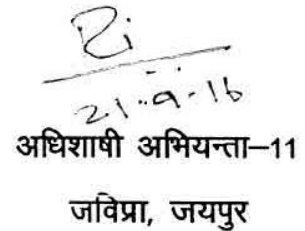 21-9-16
अधिशाषी अभियन्ता–11
जविप्रा, जयपुर